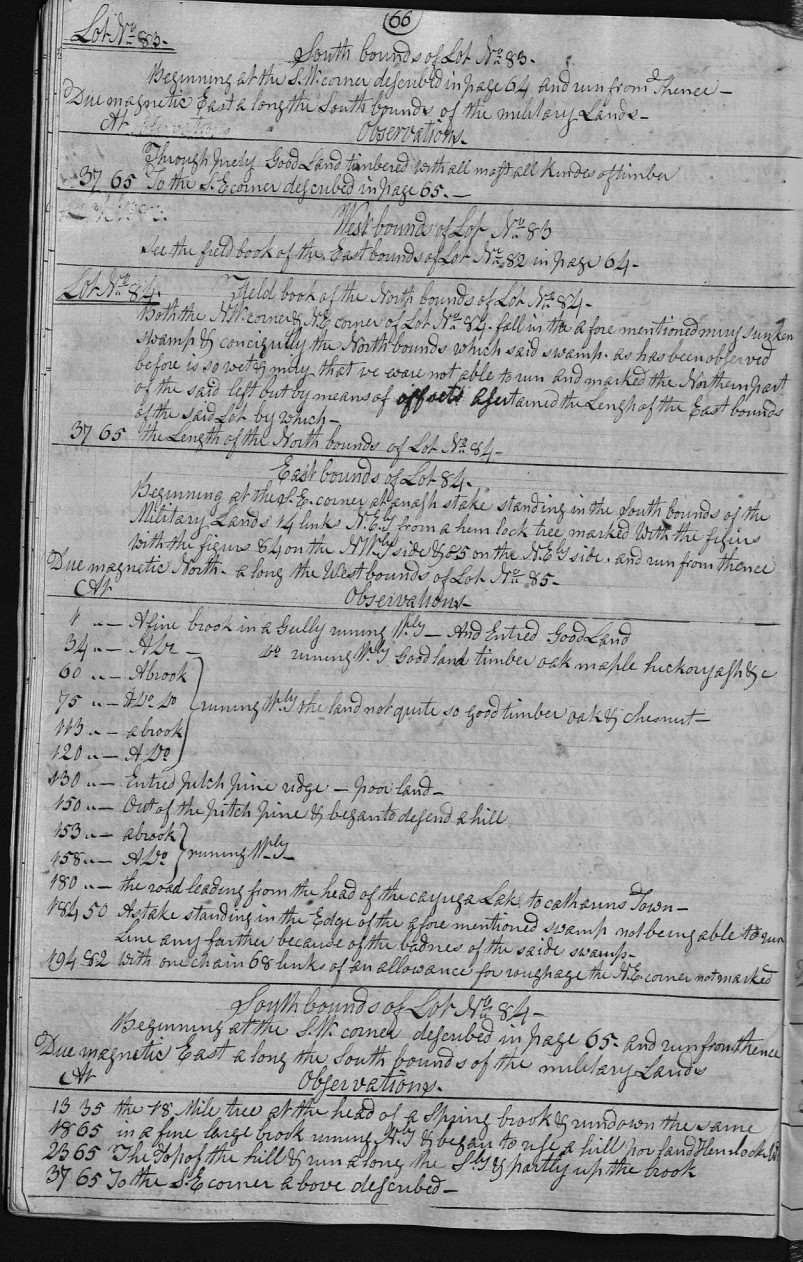 66
Lot No. 83.
South bounds of Lot No. 83.
Beginning at the S.W. corner described in page 64 and run from Thence —
Due magnetic East a long the South bounds of the military Lands —
At Observations.
Through prety Good Land timbered with all most all Kindes of timber
37 65 To the S.E corner described in page 65. —
West bounds of Lot No. 83
See the field book of the East bounds of Lot No. 82 in page 64 —
Lot No. 84. Field book of the North bounds of Lot No. 84 —
Both the N.W. corner & N.E. corner of Lot No. 84. fall in the a fore mentioned miry sunken
swamp & the North bounds which said swamp. as has been observed
before is so wet & miry that we ware not able to run and marked the Northern part
of the said left but by means of offsets the Lengh of the East bounds
of the said Lot by which —
37 65 the Length of the North bounds of Lot No. 84 —
East bounds of Lot 84.
Beginning at the S.E. corner at an ash stake standing in the South bounds of the
Military Lands 14 links N.E.y from a hem lock tree marked with the figurs
with the figurs 84 on the N.W.ly side & 85 on the N.E.y side. and run from thence
Due magnetic North. a long the West bounds of Lot No. 85 —
At Observations —
1 „ — A fine brook in a Gully runing W.ly — And Entred Good Land
34 „ — A Do — Do runing W.y Good land timber oak maple huckory ash & c
60 „ — A brook
75 „ — A Do Do } runing W.ly the land not quite so Good timber oak & Chesnut —
113 „ — a brook
120 „ — A Do
130 „ — Entred pitch pine ridge — poor land —
150 „ — Out of the pitch pine & began to desend a hill
153 „ — a brook
158 „ — A Do } runing W.ly
180 „ — the road leading from the head of the cayuga Lake to catharins Town —
184 50 A stake standing in the Edge of the afore mentioned swamp not being able to run
Line any farther because of the badnes of the saide swamp —
194 82 With one chain 68 links of an allowance for roughage the N.E. corner not marked
South bounds of Lot No. 84 —
Beginning at the S.W. corner described in page 65 — and run from thence
Due magnetic East a long the South bounds of the military Lands
At Observations.
13 35 the 18 Mile tree at the head of a Spring brook & run down the same
18 65 in a fine large brook runing N.y & began to rise a hill por land Hemlock
23 65 The Top of the hill & run a long the S.ly & partly up the brook
37 65 To the S.E corner a bove described —